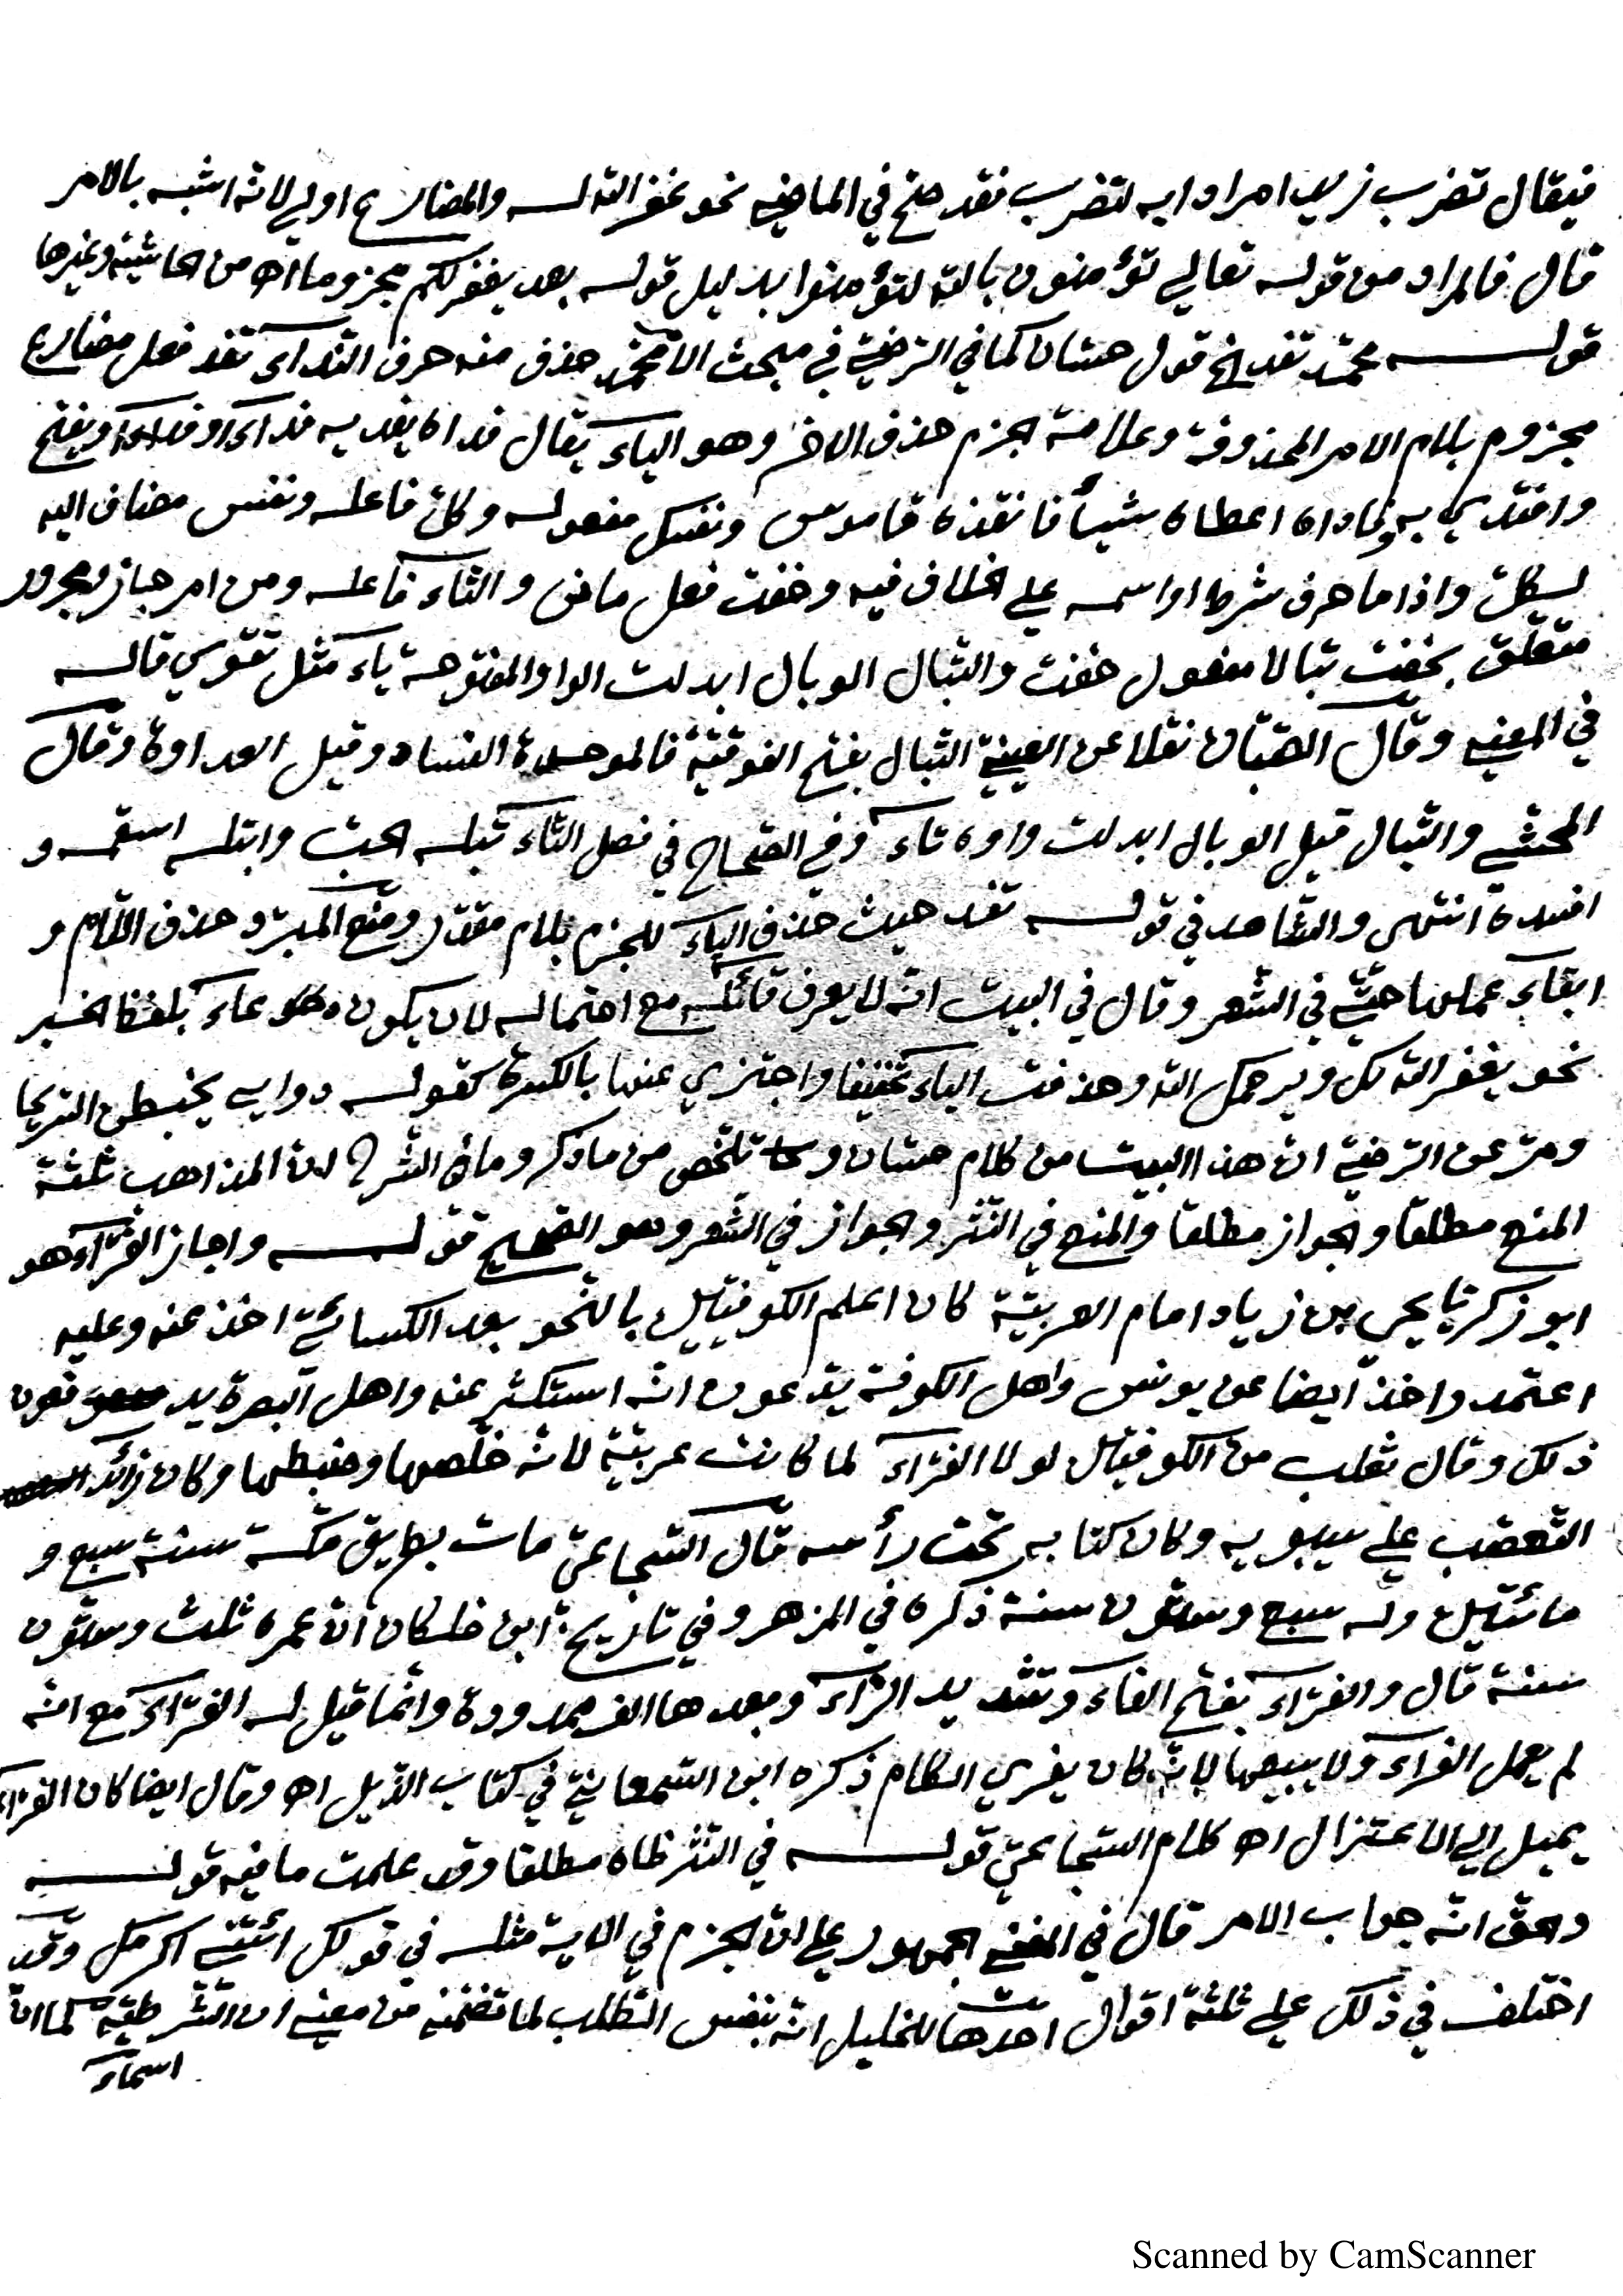 فيقال تضرب زيدا مرادا به لتضرب فقد صح في الماضي نحو غفر الله له والمضارع اولى لانه اشبه بالامر
قال فالمراد من قوله تعالى تؤمنون بالله لتؤمنوا بدليل قوله بعد يغفر لكم مجزوما اه من الحاشية وغيرها
قوله محمد تفد الخ قول حسان كما في الرضي في مبحث الا محمد حذف منه حرف النداء تفد فعل مضارع
مجزوم بلام الامر المحذوفة وعلامة الجزم حذف الاخر وهو الياء يقال فداه يفديه فداء او فدا ويفتح
وافتدى به وفاداه اعطاه شيأ فانقذه قاموس ونفسك مفعوله وكل فاعله ونفس مضاف اليه
لكل واذا ما حرف شرط او اسمه على الخلاف فيه وخفت فعل ماض والتاء فاعله ومن امر جار ومجرور
متعلق بخفت تبالا مفعول خفت والتبال الوبال ابدلت الواو المفتوحة ياء مثل تقوى قاله
في المغني وقال الصبان نقلا عن العيني التبال بفتح الفوقية فالموحدة الفساد وقيل العداوة وقال
المحشي والتبال قيل الوبال ابدلت واوه تاء وفي الصحاح في فصل التاء تبله الحب وابتله اسقمه و
افسده انتهى والشاهد في قوله تفد حيث حذف الياء للجزم بلام مقدر ومنع المبرد حذف اللام و
ابقاء عملها حتى في الشعر وقال في البيت انه لا يعرف قائله مع احتماله لان يكون دعاء بلفظ الخبر
نحو يغفر الله لك ويرحمك الله وحذفت الياء تخفيفا واجتزي عنها بالكسرة كقوله دوامي يخبطن السريحا
ومر عن الرضي ان هذا البيت من كلام حسان وتلخص من ما ذكر وما في الشرح ان المذاهب ثلثة
المنع مطلقا والجواز مطلقا والمنع في النثر والجواز في الشعر وهو الصحيح قوله واجاز الفراء هو
ابو زكريا يحيى بن زياد امام العربية كان اعلم الكوفيين بالنحو بعد الكسائي اخذ عنه وعليه
اعتمد واخذ ايضا عن يونس واهل الكوفة يدعون انه استكثر عنه واهل البصرة يدفعون
ذلك وقال ثعلب من الكوفيين لولا الفراء لما كانت عربية لانه خلصها وضبطها وكان زائد
التعصب على سيبويه وكان كتابه تحت رأسه قال الشجاعي مات بطريق مكة سنة سبع و
مائتين وله سبع وستون سنة ذكره في المزهر وفي تاريخ ابن خلكان ان عمره ثلث وستون
سنة قال والفراء بفتح الفاء وتشديد الراء وبعدها الف ممدودة وانما قيل له الفراء مع انه
لم يعمل الفراء ولا يبيعها لانه كان يفري الكلام ذكره ابن السمعاني في كتاب الذيل اه وقال ايضا كان الفراء
يميل الى الاعتزال اه كلام الشجاعي قوله في النثر ظاه مطلقا وقد علمت ما فيه قوله
والحق انه جواب الامر قال في المغني الجمهور على ان الجزم في الاية مثله في قولك ائتني اكرمك وقد
اختلف في ذلك على ثلثة اقوال احدها للخليل انه بنفس الطلب لما تضمنه من معنى ان الشرطية كما ان
اسماء
Scanned by CamScanner